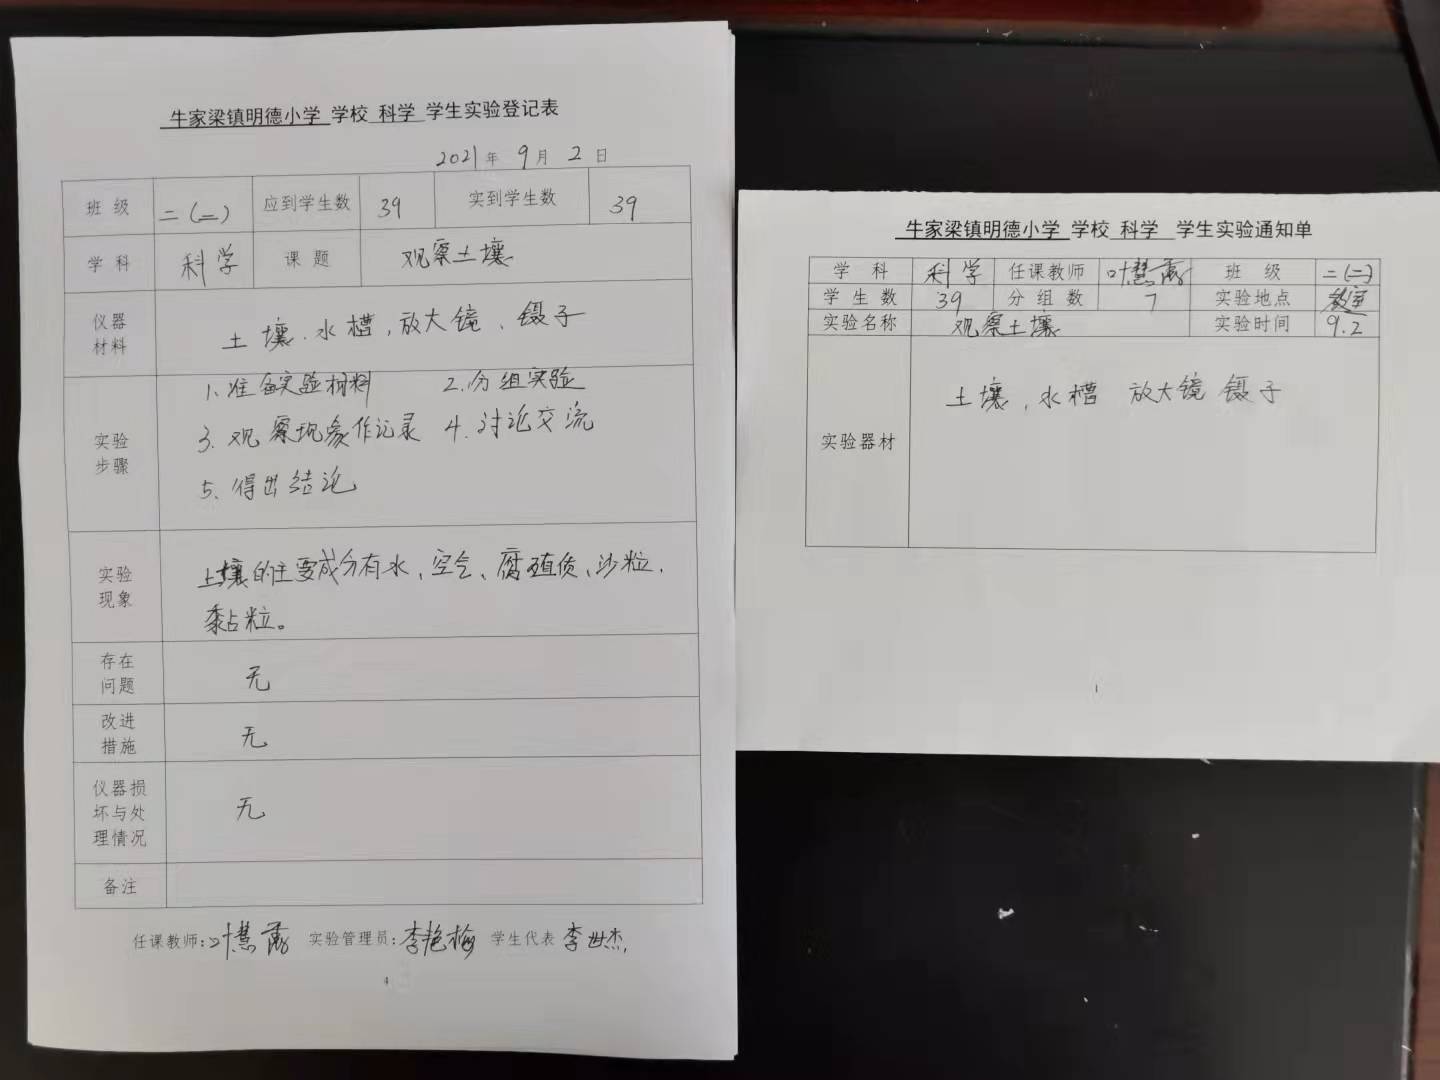 牛家梁镇明德小学 学校 科学 学生实验登记表
2021 年 9 月 2 日
班 级 二(二) 应到学生数 39 实到学生数 39
学 科 科学 课 题 观察土壤
仪器
材料
土壤、水槽,放大镜、镊子
实验
步骤
1.准备实验材料 2.分组实验
3.观察现象作记录 4.讨论交流
5、得出结论
实验
现象
土壤的主要成分有水、空气、腐殖质、沙粒、
黏粒。
存在
问题
无
改进
措施
无
仪器损
坏与处
理情况
无
备注
任课教师:叶慧 实验管理员:李艳梅 学生代表 李世杰
4
牛家梁镇明德小学 学校 科学 学生实验通知单
学 科 科学 任课教师 叶慧 班 级 二(二)
学 生 数 39 分 组 数 7 实验地点 教室
实验名称 观察土壤 实验时间 9.2
实验器材
土壤、水槽 放大镜 镊子
1